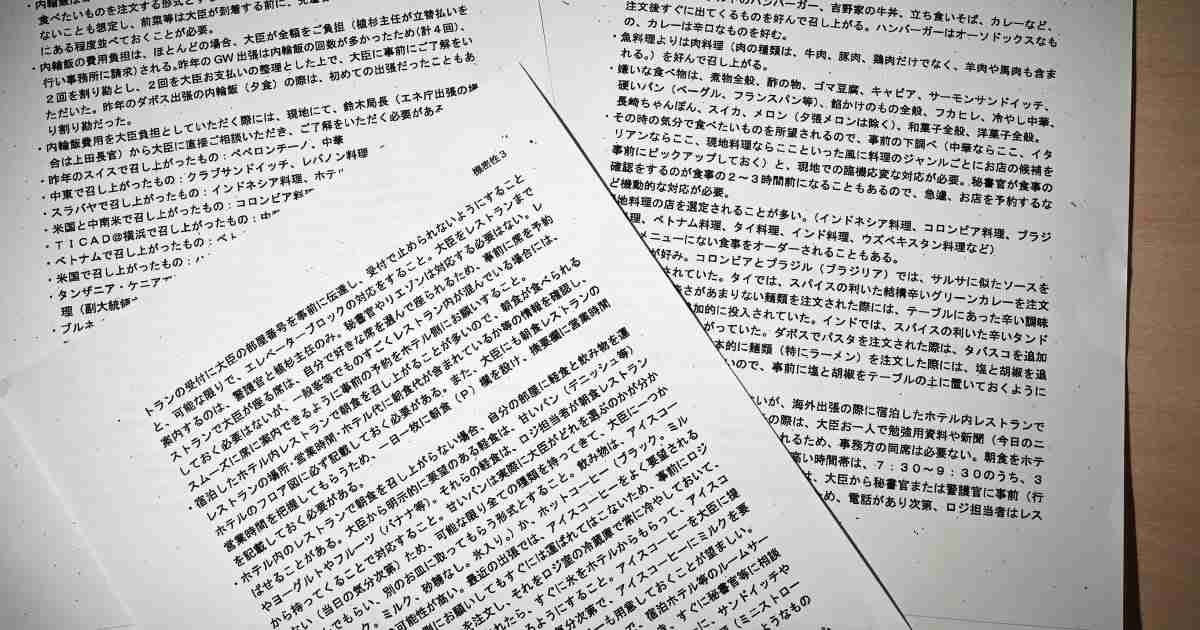 ・内輪飯は
食べたいものを注文する形式とす
ないことも想定し、前菜等は大臣が到着する前に、先遣
にある程度並べておくことが必要。
・内輪飯の費用負担は、ほとんどの場合、大臣が全額をご負担（植杉主任が立替払いを
行い事務所に請求）される。昨年のGW出張は内輪飯の回数が多かったため（計４回）、
２回を割り勘とし、２回を大臣お支払いの整理とした上で、大臣に事前にご了解をい
ただいた。昨年のダボス出張の内輪飯（夕食）の際は、初めての出張だったこともあ
り割り勘だった。
・内輪飯費用を大臣負担としていただく際には、現地にて、鈴木局長（エネ庁出張の場
合は上田長官）から大臣に直接ご相談いただき、ご了解をいただく必要がある
・昨年のスイスで召し上がったもの：ペペロンチーノ、中華
・中東で召し上がったもの：クラブサンドイッチ、レバノン料理
・スラバヤで召し上がったもの：インドネシア料理、ホテル
・米国と中南米で召し上がったもの：コロンビア料理
・ＴＩＣＡＤ＠横浜で召し上がったもの：中
・ベトナムで召し上がったもの：ベト
・米国で召し上がったもの：ハ
・タンザニア・ケニア
理（副大統領
・ブルネ
ハンバーガー、吉野家の牛丼、立ち食いそば、カレーなど、
注文後すぐに出てくるものを好んで召し上がる。ハンバーガーはオーソドックスなも
の、カレーは辛口なものを好む。
・魚料理よりは肉料理（肉の種類は、牛肉、豚肉、鶏肉だけでなく、羊肉や馬肉も含ま
れる。）を好んで召し上がる。
・嫌いな食べ物は、煮物全般、酢の物、ゴマ豆腐、キャビア、サーモンサンドイッチ、
硬いパン（ベーグル、フランスパン等）、餡かけのもの全般、フカヒレ、冷やし中華、
長崎ちゃんぽん、スイカ、メロン（夕張メロンは除く）、和菓子全般、洋菓子全般。
・その時の気分で食べたいものを所望されるので、事前の下調べ（中華ならここ、イタ
リアンならここ、現地料理ならここといった風に料理のジャンルごとにお店の候補を
事前にピックアップしておく）と、現地での臨機応変な対応が必要。秘書官が食事の
確認をするのが食事の２～３時間前になることもあるので、急遽、お店を予約するな
ど機動的な対応が必要。
地料理の店を選定されることが多い。（インドネシア料理、コロンビア料理、ブラジ
理、ベトナム料理、タイ料理、インド料理、ウズベキスタン料理など）
メニューにない食事をオーダーされることもある。
が好み。コロンビアとブラジル（ブラジリア）では、サルサに似たソースを
されていた。タイでは、スパイスの利いた結構辛いグリーンカレーを注文
辛さがあまりない麺類を注文された際には、テーブルにあった辛い調味
加的に投入されていた。インドでは、スパイスの利いた辛いタンド
がっていた。ダボスでパスタを注文された際は、タバスコを追加
本的に麺類（特にラーメン）を注文した際には、塩と胡椒を追
いので、事前に塩と胡椒をテーブルの上に置いておくように
いが、海外出張の際に宿泊したホテル内レストランで
の際は、大臣お一人で勉強用資料や新聞（今日のニ
れるため、事務方の同席は必要ない。朝食をホテ
高い時間帯は、７：３０～９：３０のうち、３
は、大臣から秘書官または警護官に事前（行
め、電話があり次第、ロジ担当者はレス
機密性３
トランの受付に大臣の部屋番号を事前に伝達し、受付で止められないようにすること
と、可能な限りで、エレベーターブロックの対応をすること。大臣をレストランまで
案内するのは、警護官と植杉主任のみ。秘書官やリエゾンは対応する必要はない。レ
ストランで大臣が座る席は、自分で好きな席を選んで座られるため、事前に席を予約
しておく必要はないが、一般客等でものすごくレストラン内が混んでいる場合には、
スムーズに席に案内できるように事前の予約をホテル側にお願いすること。
・宿泊したホテル内レストランで朝食を召し上がることが多いので、朝食が食べられる
レストランの場所・営業時間・ホテル代に朝食代が含まれているか等の情報を確認し、
ホテルのフロア図に必ず記載しておく必要がある。また、大臣にも朝食レストランの
営業時間を把握してもらうため、一日一枚に朝食（Ｐ）欄を設け、携要欄に営業時間
を記載しておく必要がある。
・ホテル内のレストランで朝食を召し上がらない場合、自分の部屋に軽食と飲み物を運
ばせることがある。大臣から明示的に要望のある軽食は、甘いパン（デニッシュ等）
やヨーグルトやフルーツ（バナナ等）。それらの軽食は、ロジ担当者が朝食レストラン
から持ってくることで対応すること。甘いパンは実際に大臣がどれを選ぶのかが分か
ない（当日の気分次第）ため、可能な限り全ての種類を持ってきて、大臣に一つか
んでもらい、別のお皿に取ってもらう形式とすること。飲み物は、アイスコー
ク。ミルク、砂糖なし。氷入り。）か、ホットコーヒー（ブラック。ミル
の可能性が高い。最近の出張では、アイスコーヒーをよく要望される
側にお願いしてもすぐには運ばれてはこないため、事前にロジ
を注文し、それをロジ室の冷蔵庫で常に冷やしておいて、
れたら、すぐに氷をホテルからもらって、アイスコ
るようにすること。アイスコーヒーを大臣に提
気分次第で、アイスコーヒーにミルクを要
ーも用意しておくことが望ましい。
で、宿泊ホテル等のルームサー
き、すぐに秘書官等に相談
に、サンドイッチや
（ミニストロー
ようなもの